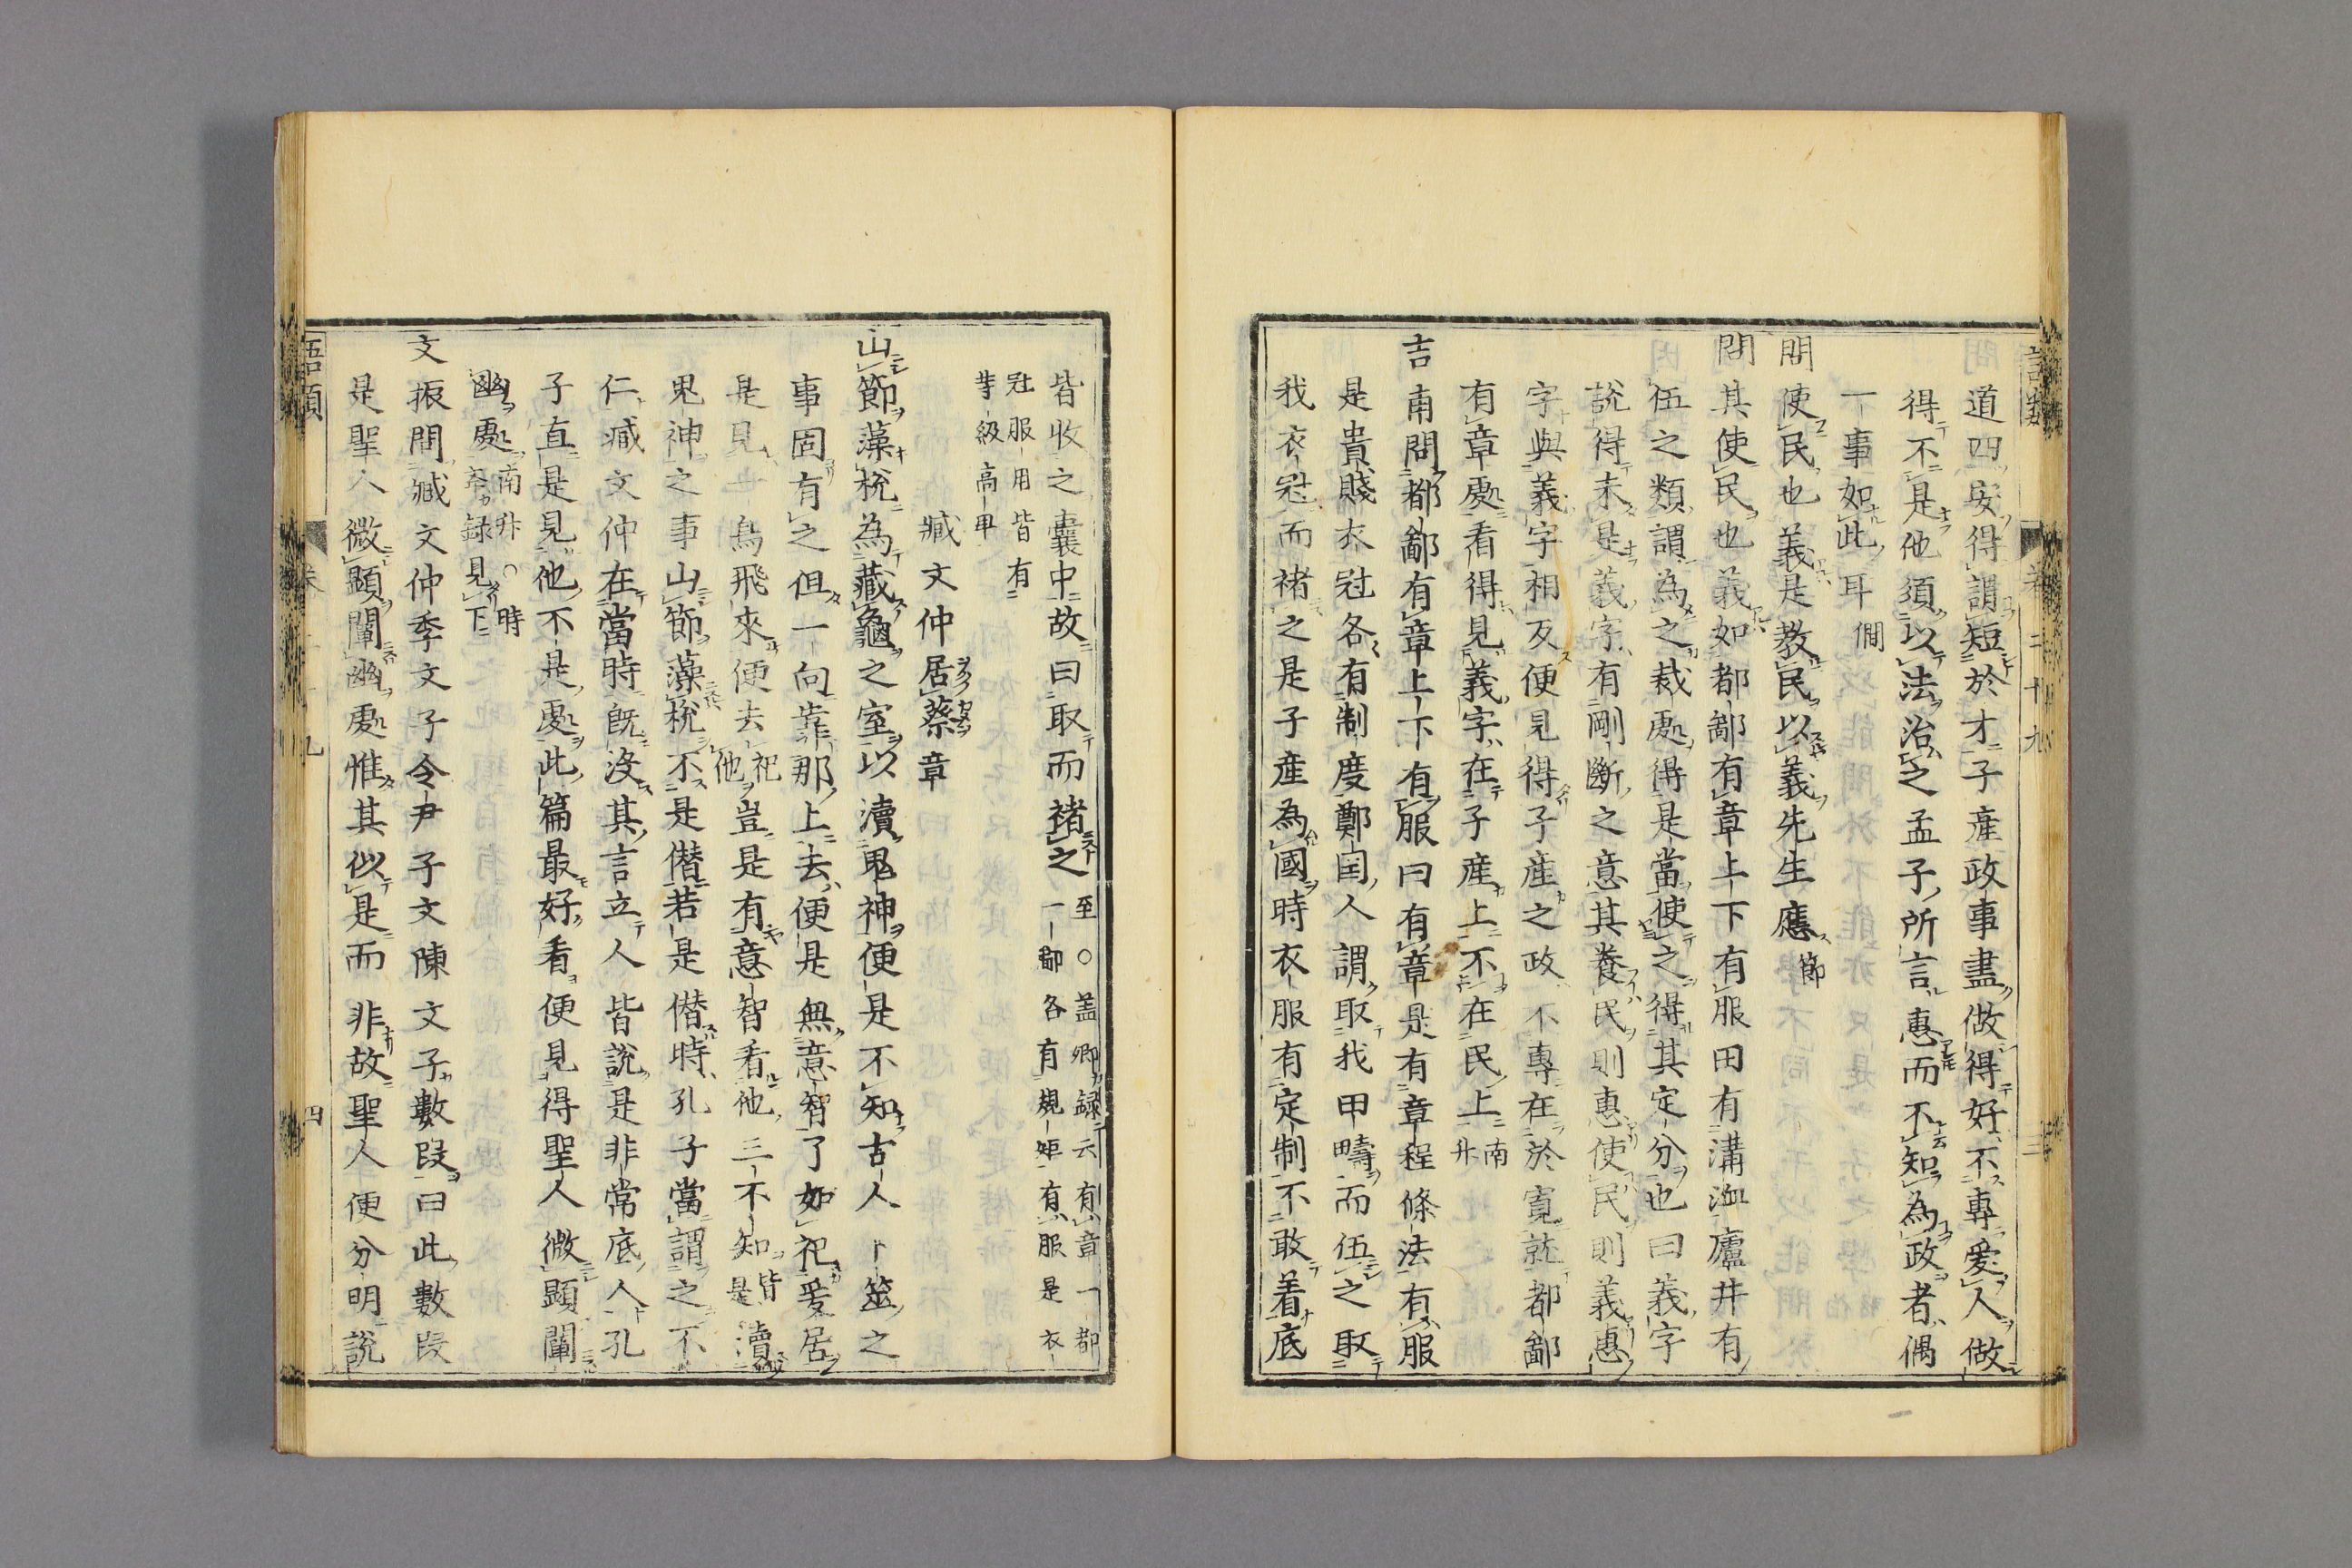 道四安得謂短於才子産政事盡做得好不專愛人做
得不是他須以法治之孟子所言惠而不知為政者偶
一事如此耳僩
問使民也義是教民以義先生應節
問其使民也義如都鄙有章上下有服田有溝洫廬井有
伍之類謂為之裁處得是當使之得其定分也曰義字
說得未是義字有剛斷之意其養民則惠使民則義惠
字與義字相反便見得子産之政不專在於寛就都鄙
有章處看得見義字在子産上不在民上南升
吉甫問都鄙有章上下有服曰有章是有章程條法有服
是貴賤衣冠各有制度鄭国人謂取我田疇而伍之取
我衣冠而褚之是子産為國時衣服有定制不敢着底
皆收之囊中故曰取而褚之至○盖卿録云有章一都
一鄙各有規矩有服是衣
冠服用皆有
等級高卑
臧文仲居蔡章
山節藻梲為藏龜之室以瀆鬼神便是不知古人卜筮之
事固有之但一向靠那上去便是無意智了如祀爰居
是見一鳥飛來便去祀他豈是有意智看他三不知皆是瀆
鬼神之事山節藻梲不是僣若是僣時孔子當謂之不
仁臧文仲在當時既没其言立人皆說是非常底人孔
子直是見他不是處此篇最好看便見得聖人微顯闡
幽處南升○時
舉録見下
文振問臧文仲季文子令尹子文陳文子數段曰此數段
是聖人微顯闡幽處惟其似是而非故聖人便分明說
語類
卷二十九
三
四